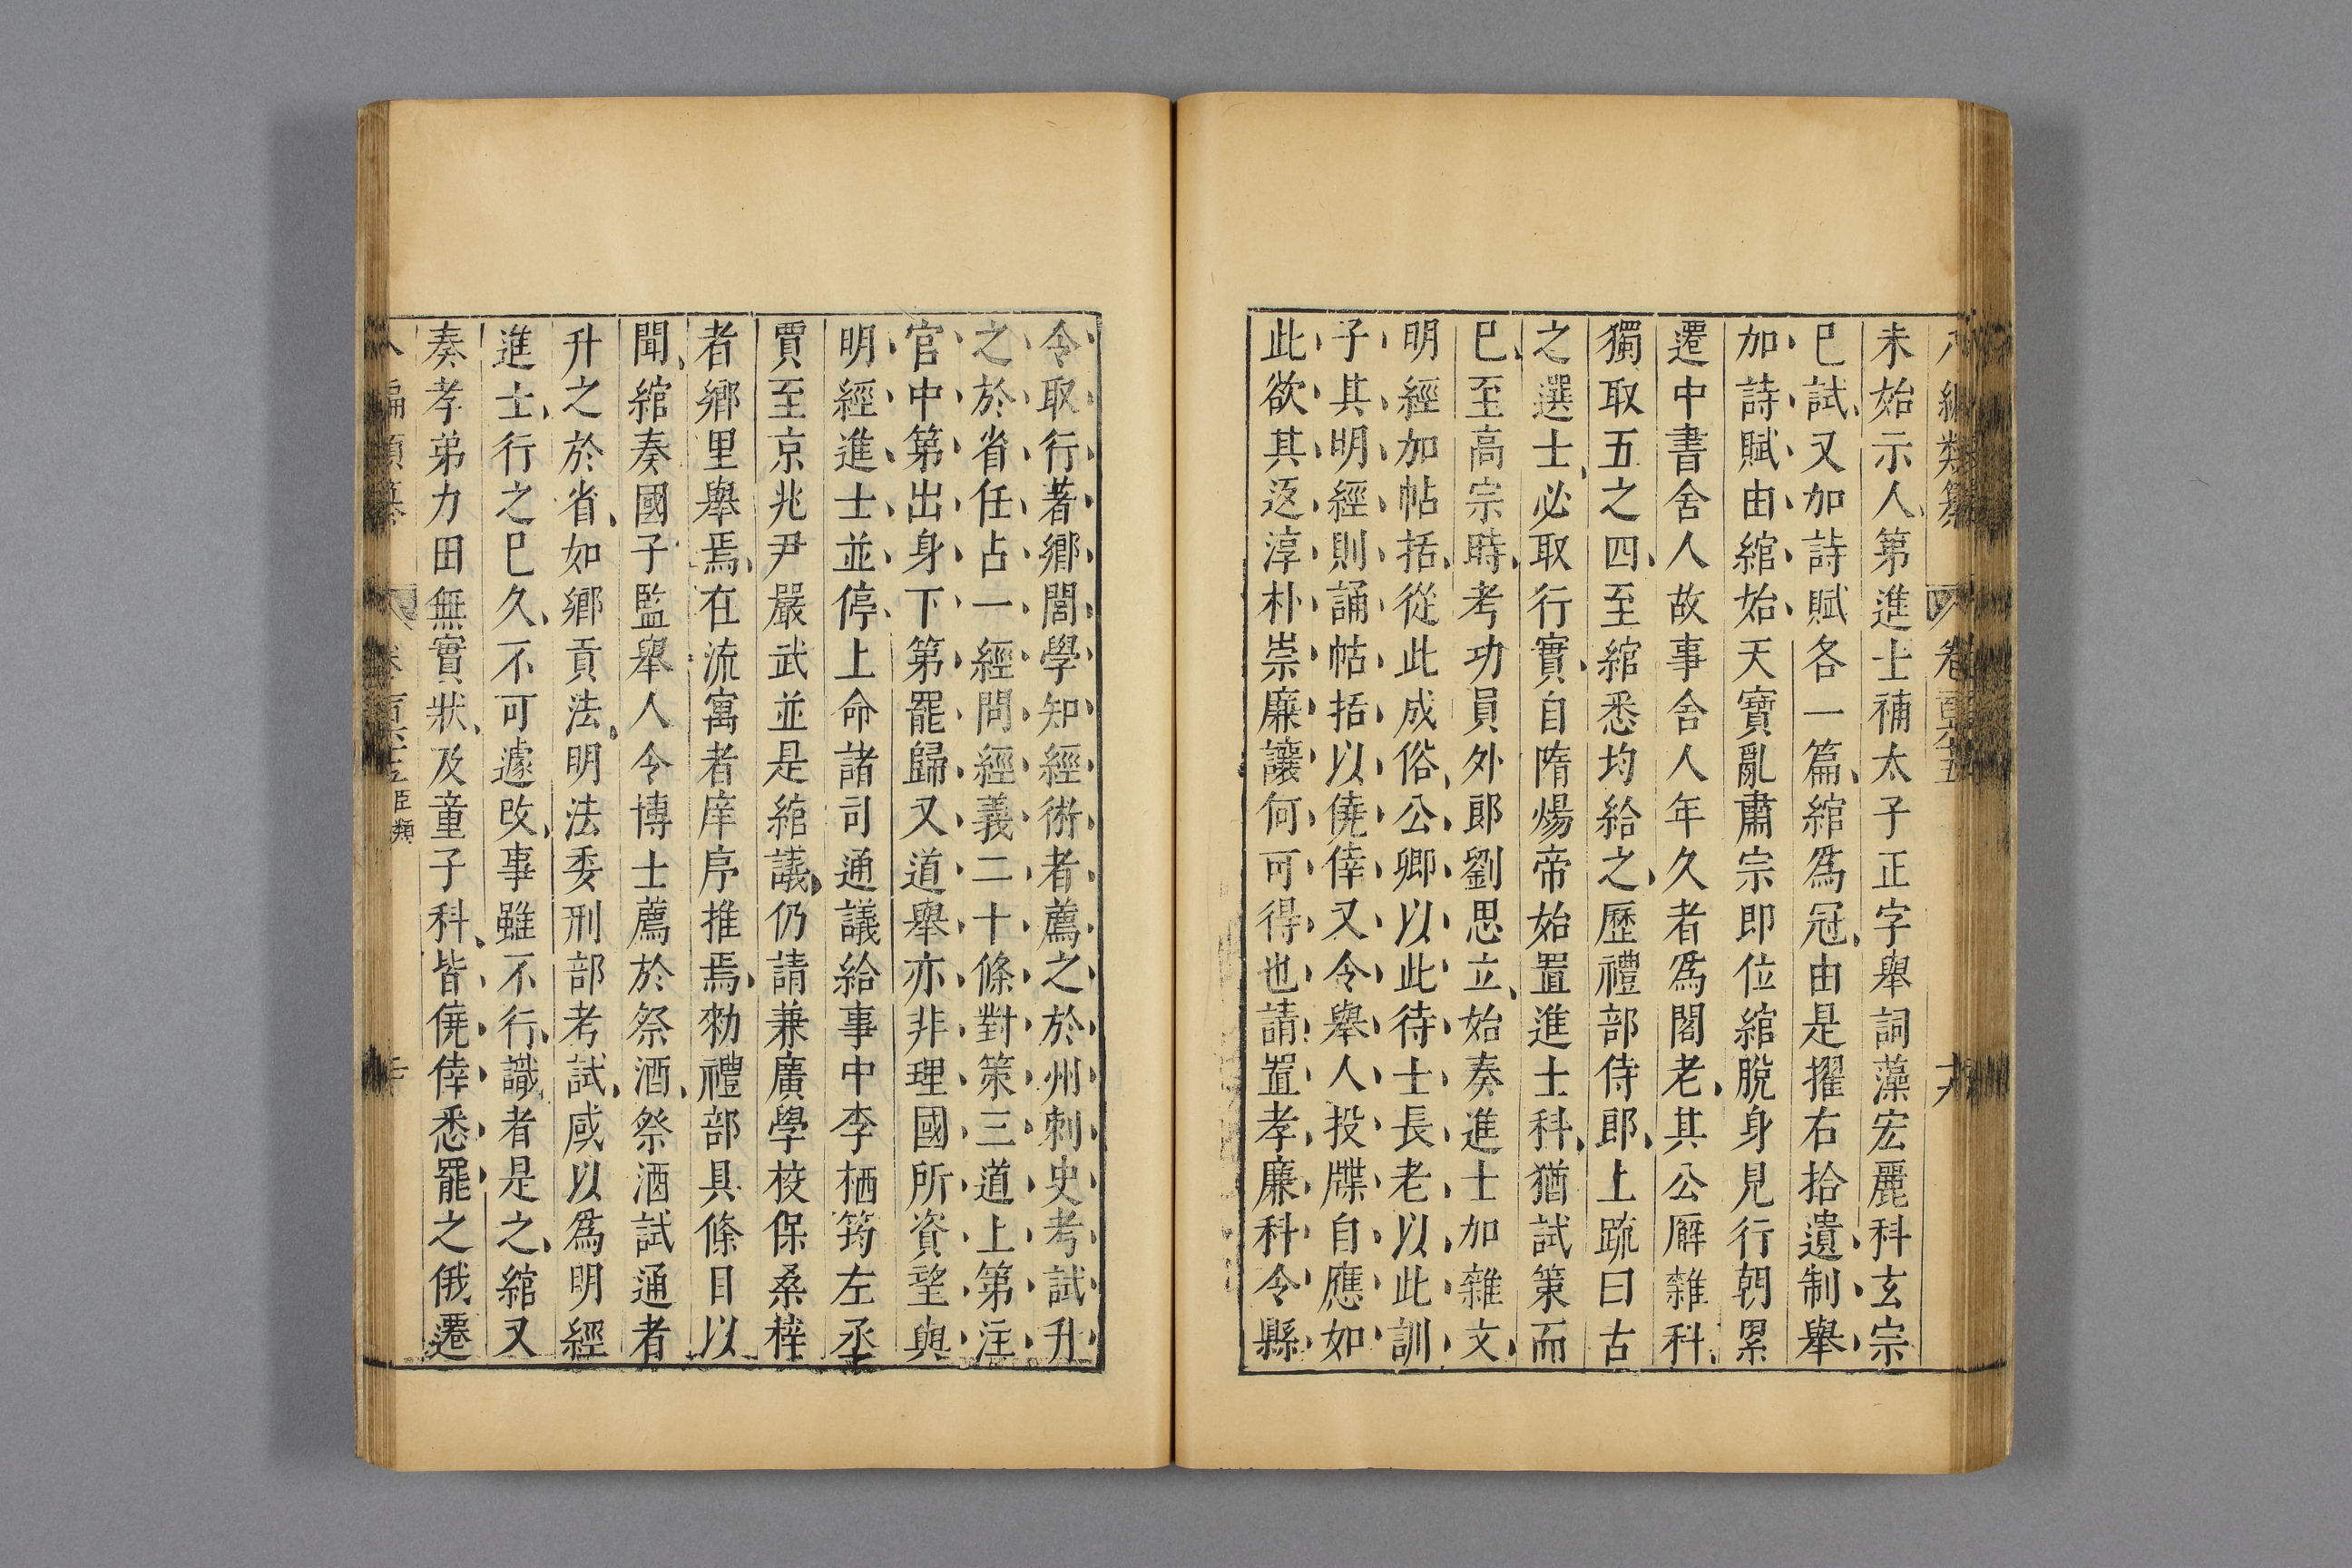 八編類纂 卷百六五 十六
未始示人第進士補太子正字舉詞藻宏麗科玄宗
巳試又加詩賦各一篇綰爲冠由是擢右拾遺制舉
加詩賦由綰始天寶亂肅宗即位綰脫身見行朝累
遷中書舍人故事舍人年久者爲閣老其公廨雜科
獨取五之四至綰悉均給之歷禮部侍郎上疏曰古
之選士必取行實自隋煬帝始置進士科猶試策而
巳至高宗時考功員外郎劉思立始奏進士加雜文
明經加帖括從此成俗公卿以此待士長老以此訓
子其明經則誦帖括以僥倖又令舉人投牒自應如
此欲其返淳朴崇廉讓何可得也請置孝廉科令縣
令取行著鄉閭學知經術者薦之於州刺史考試升
之於省任占一經問經義二十條對策三道上第注
官中第出身下第罷歸又道舉亦非理國所資望與
明經進士並停上命諸司通議給事中李栖筠左丞
賈至京兆尹嚴武並是綰議仍請兼廣學校保桑梓
者鄉里舉焉在流寓者庠序推焉勑禮部具條目以
聞綰奏國子監舉人令博士薦於祭酒祭酒試通者
升之於省如鄉貢法明法委刑部考試咸以爲明經
進士行之巳久不可遽改事雖不行識者是之綰又
奏孝弟力田無實狀及童子科皆僥倖悉罷之俄遷
編類纂 卷百六十五 臣類